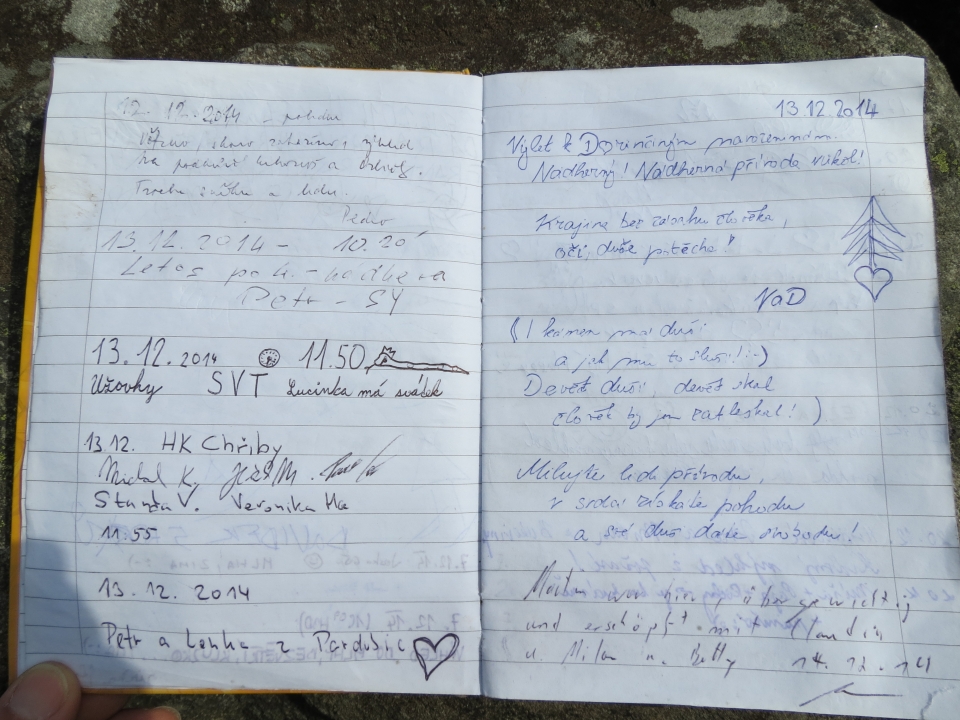 12. 12. 2014 - pohoda
skoro výhled
na a
Trochu sněhu a ledu.
Pedro
13.12. 2014 - 10.20
Letos po 4. - nádhera
Petr - SY
13.12.2014 11.50
Užovky SVT Lucinka má svátek
13.12. HK Chřiby
Michal K.
Standa V. Veronika Ha
11:55
13.12. 2014
Petr a Lenka z Pardubic
13.12 2014
Výlet k
Nádherný! Nádherná příroda vůkol!
Krajina bez zásahu člověka,
oči, duše potěcha!
VaD
(I kámen má duši
a jak mu to sluší! :-)
Devět duší, devět skal
člověk by jim zatleskal! )
Milujte lidi přírodu,
v srdci získáte pohodu
a své duši dáte svobodu!
war hier übergewichtig
und erschöpft mit
u. Milan u. Betty 14.12.14